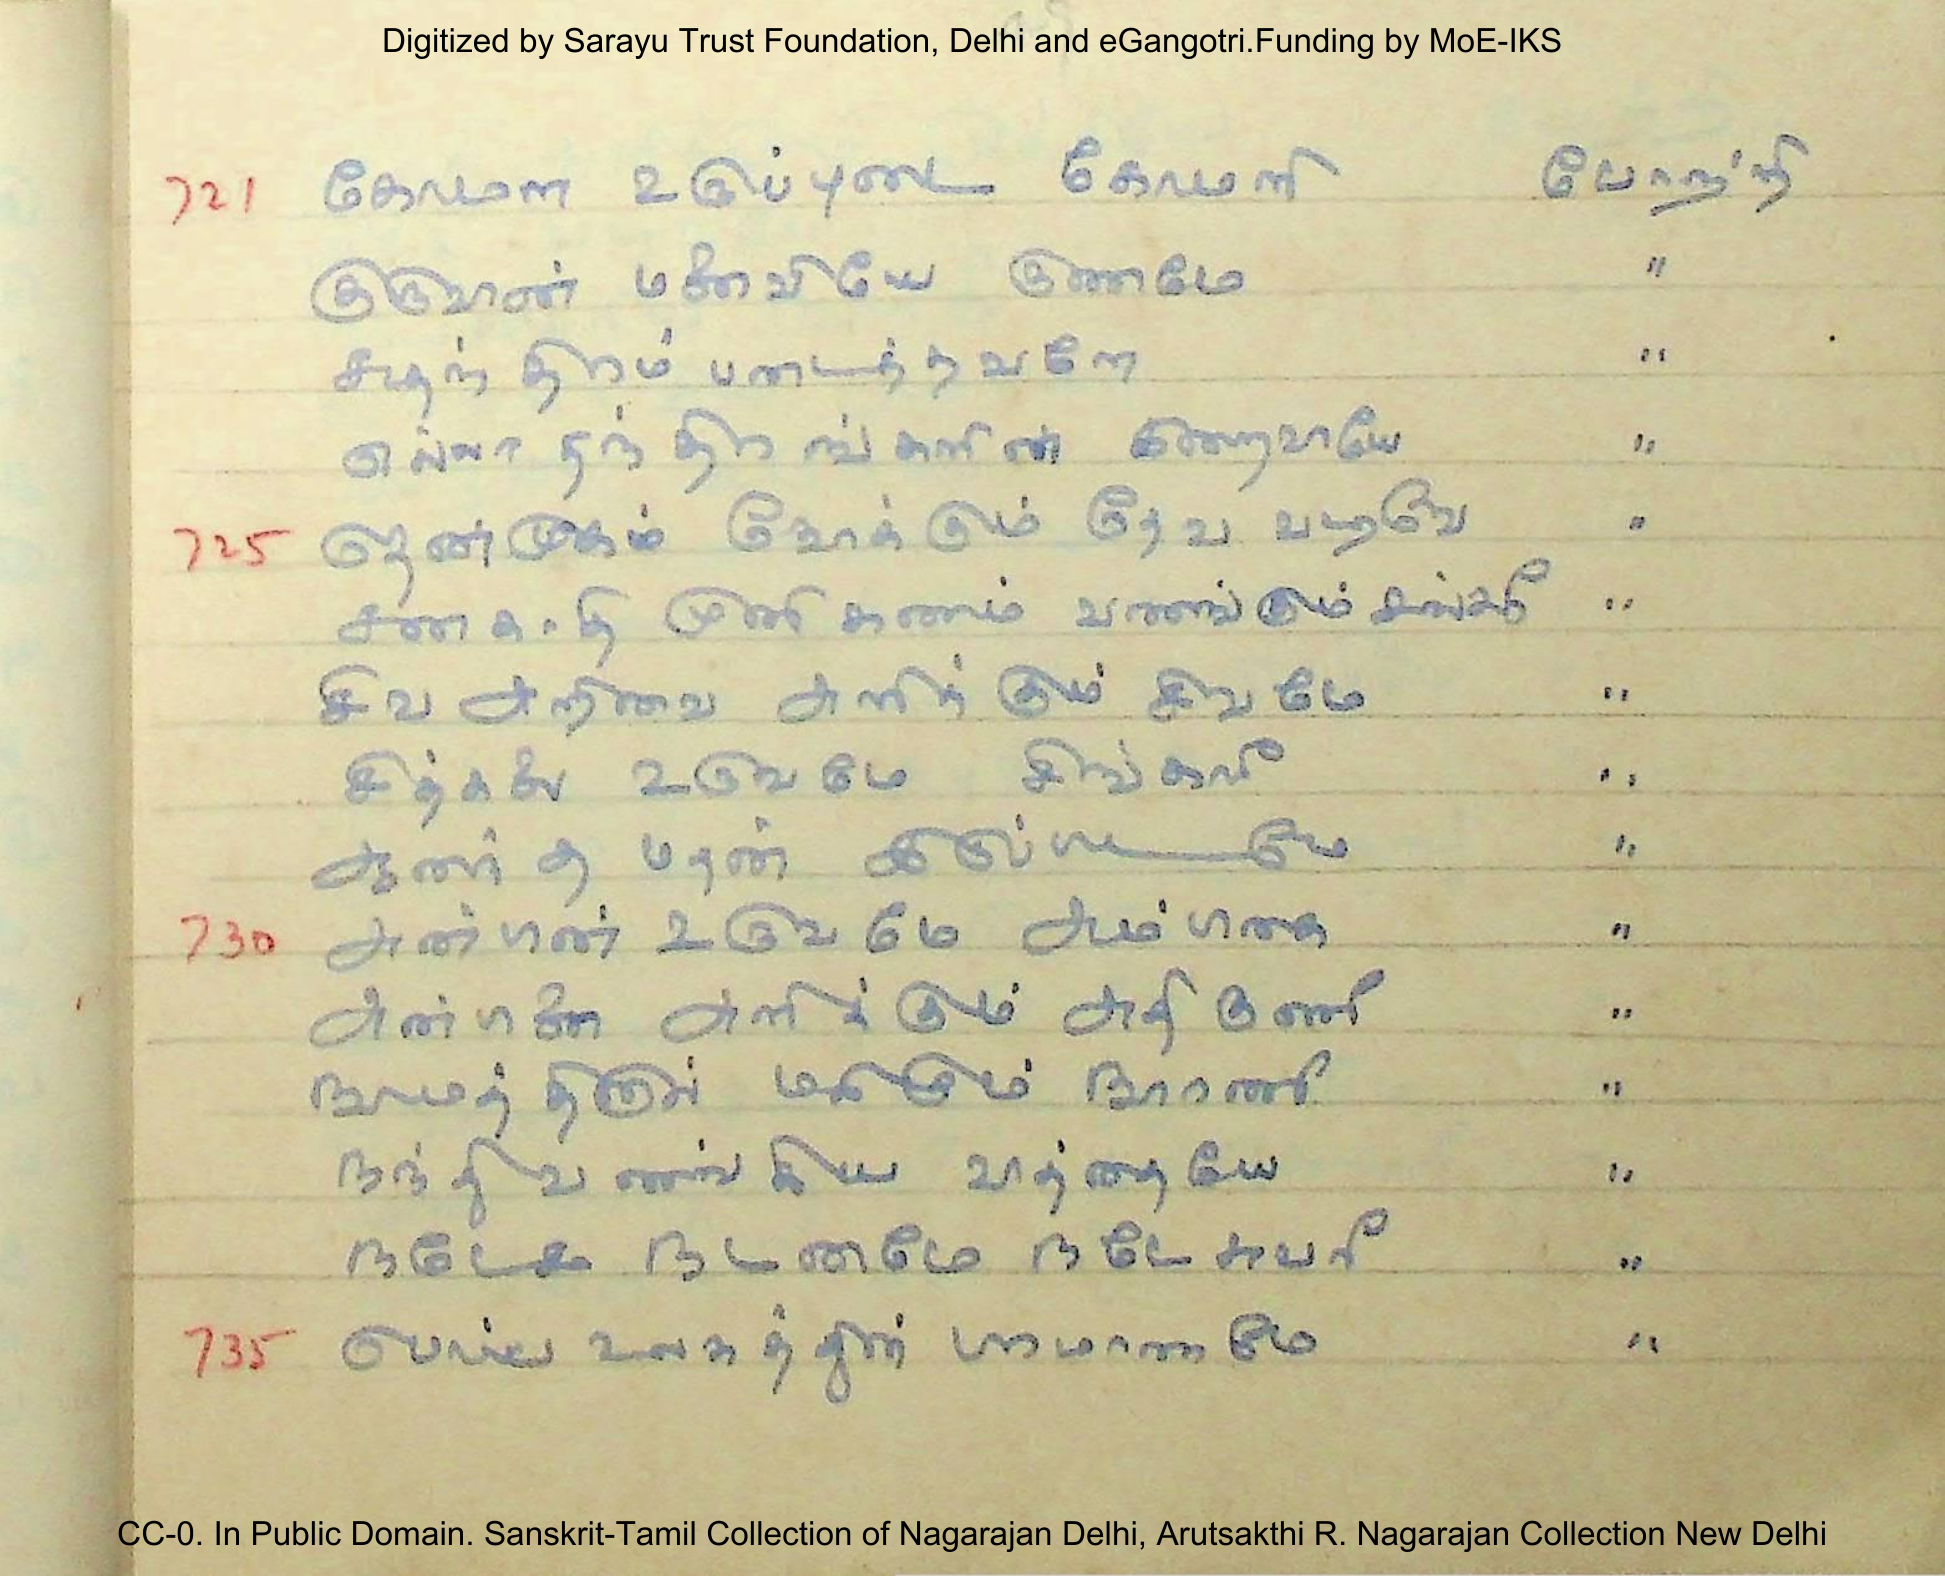 Digitized by Sarayu Trust Foundation, Delhi and eGangotri.Funding by MoE-IKS
721 கோமள உடுப்புடை கோமளி போற்றி
குருவான் மனைவியே குணமே "
சுதந்திரம் படைத்தவளே "
எல்லா தந்திரங்களின் இறைவாயே "
725 தென்முகம் நோக்கும் தேவ வடிவே "
சனகாதி முனி கணம் வணங்கும் சங்கரீ "
சிவ அறிவை அளிக்கும் சிவமே "
சித்கலை உருவமே சிங்காரீ "
ஆனந்த மதன் இருப்பிடமே "
730 அன்பின் உருவமே அம்பிகை "
அன்பினை அளிக்கும் அதிகுணீ "
நாமத்தினுள் மகிழும் நாரணீ "
நந்தி வணங்கிய வாத்தையே "
நடேச நடனமே நடேசுவரீ "
735 பொய்யுலகத்தின் பரமானமே "
CC-0. In Public Domain. Sanskrit-Tamil Collection of Nagarajan Delhi, Arutsakthi R. Nagarajan Collection New Delhi